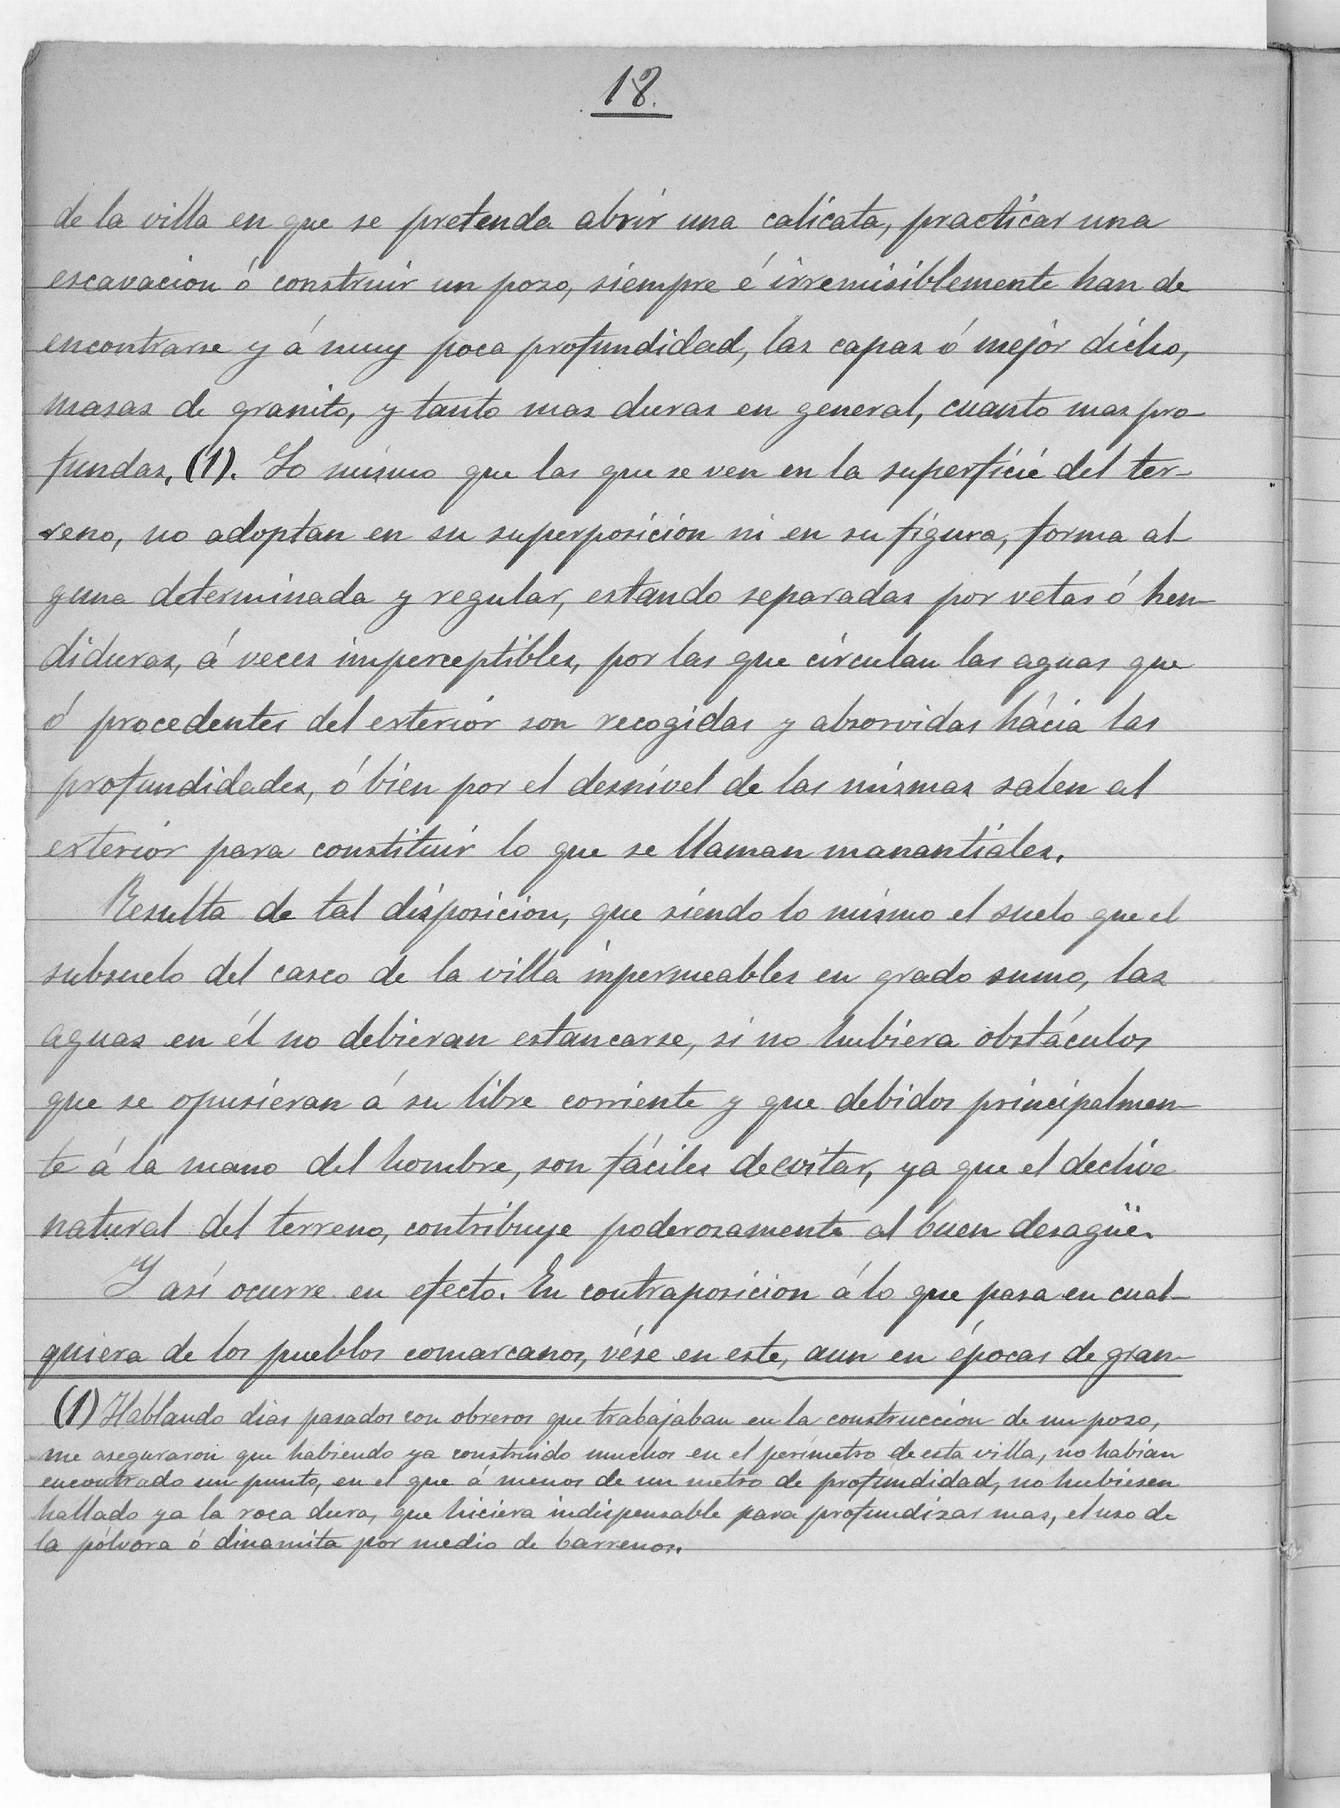 18.
de la villa en que se pretenda abrir una calicata, practicar una
escavacion ó construir un pozo, siempre é irremisiblemente han de
encontrarse y á muy poca profundidad, las capas ó mejor dicho,
masas de granito, y tanto mas duras en general, cuanto mas pro-
fundas, (1). Lo mismo que las que se ven en la superficie del ter-
reno, no adoptan en su superposicion ni en su figura, forma al-
guna determinada y regular, estando separadas por vetas ó hen-
diduras, á veces imperceptibles, por las que circulan las aguas que
ó procedentes del exterior son recogidas y absorvidas hácia las
profundidades, ó bien por el desnivel de las mismas salen al
exterior para constituir lo que se llaman manantiales.
Resulta de tal disposicion, que siendo lo mismo el suelo que el
subsuelo del casco de la villa impermeables en grado sumo, las
aguas en él no debieran estancarse, si no hubiera obstáculos
que se opusieran á su libre corriente y que debidos principalmen-
te á la mano del hombre, son fáciles de evitar, ya que el declive
natural del terreno, contribuye poderosamente al buen desagüe.
Y así ocurre en efecto. En contraposicion á lo que pasa en cual-
quiera de los pueblos comarcanos, vése en este, aun en épocas de gran-
(1) Hablando dias pasados con obreros que trabajaban en la construcción de un pozo,
me aseguraron que habiendo ya construido muchos en el perímetro de esta villa, no habian
encontrado un punto, en el que á menos de un metro de profundidad, no hubiesen
hallado ya la roca dura, que hiciera indispensable para profundizar mas, el uso de
la pólvora ó dinamita por medio de barrenos.